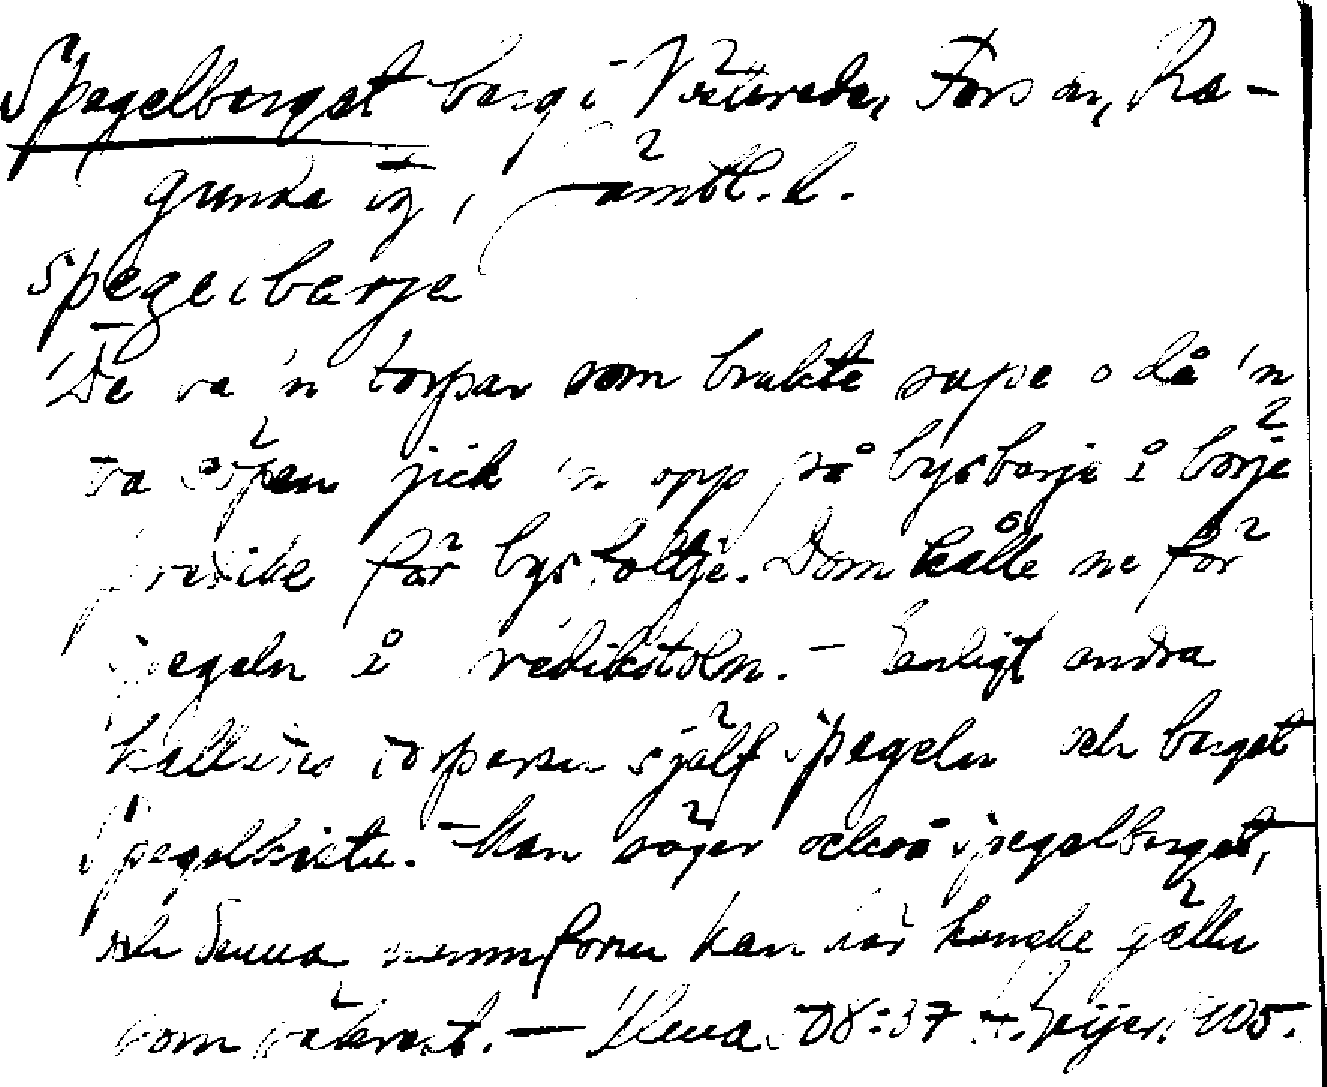 Spegelberget berg i Västerede, Fors sn, Ra-
gunda tg, Jämtl. l.
spegelbærje
De va 'n torpar som brukte supe o då 'n
va söpen jick 'n opp på bysbærje å börje
predike för bysfoltje. Dom kalle ne för
spegeln å predikstoln. – Enligt andra
kallades torparen själf spegeln och berget
Spegelkista. – Man säger också spegelberget,
och denna namnform kan väl kanske gälla
som säkrast. – Ulma 508:37 Geijer. 1905.